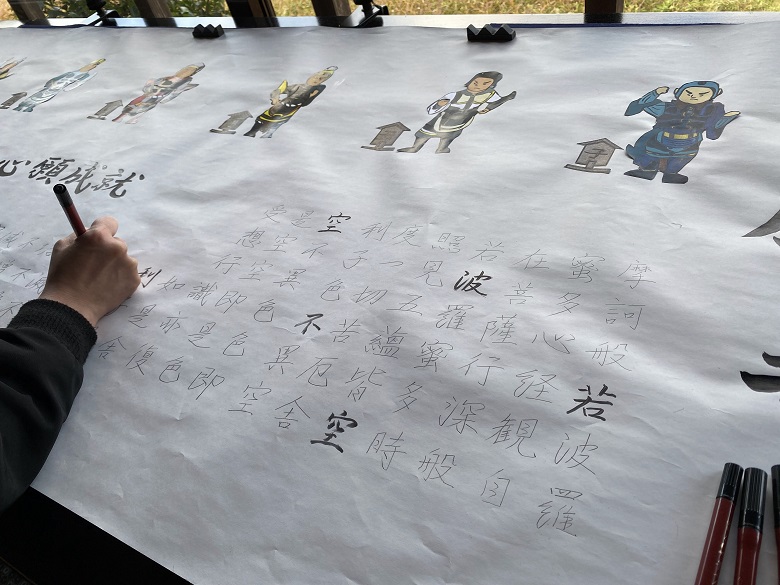 心願成就
摩訶般若波羅
蜜多心経観自
在菩薩行深般
若波羅蜜多時
照見五蘊皆空
度一切苦厄舎
利子色不異空
空不異色色即
是空空即是色
受想行識亦復
如是舎
利